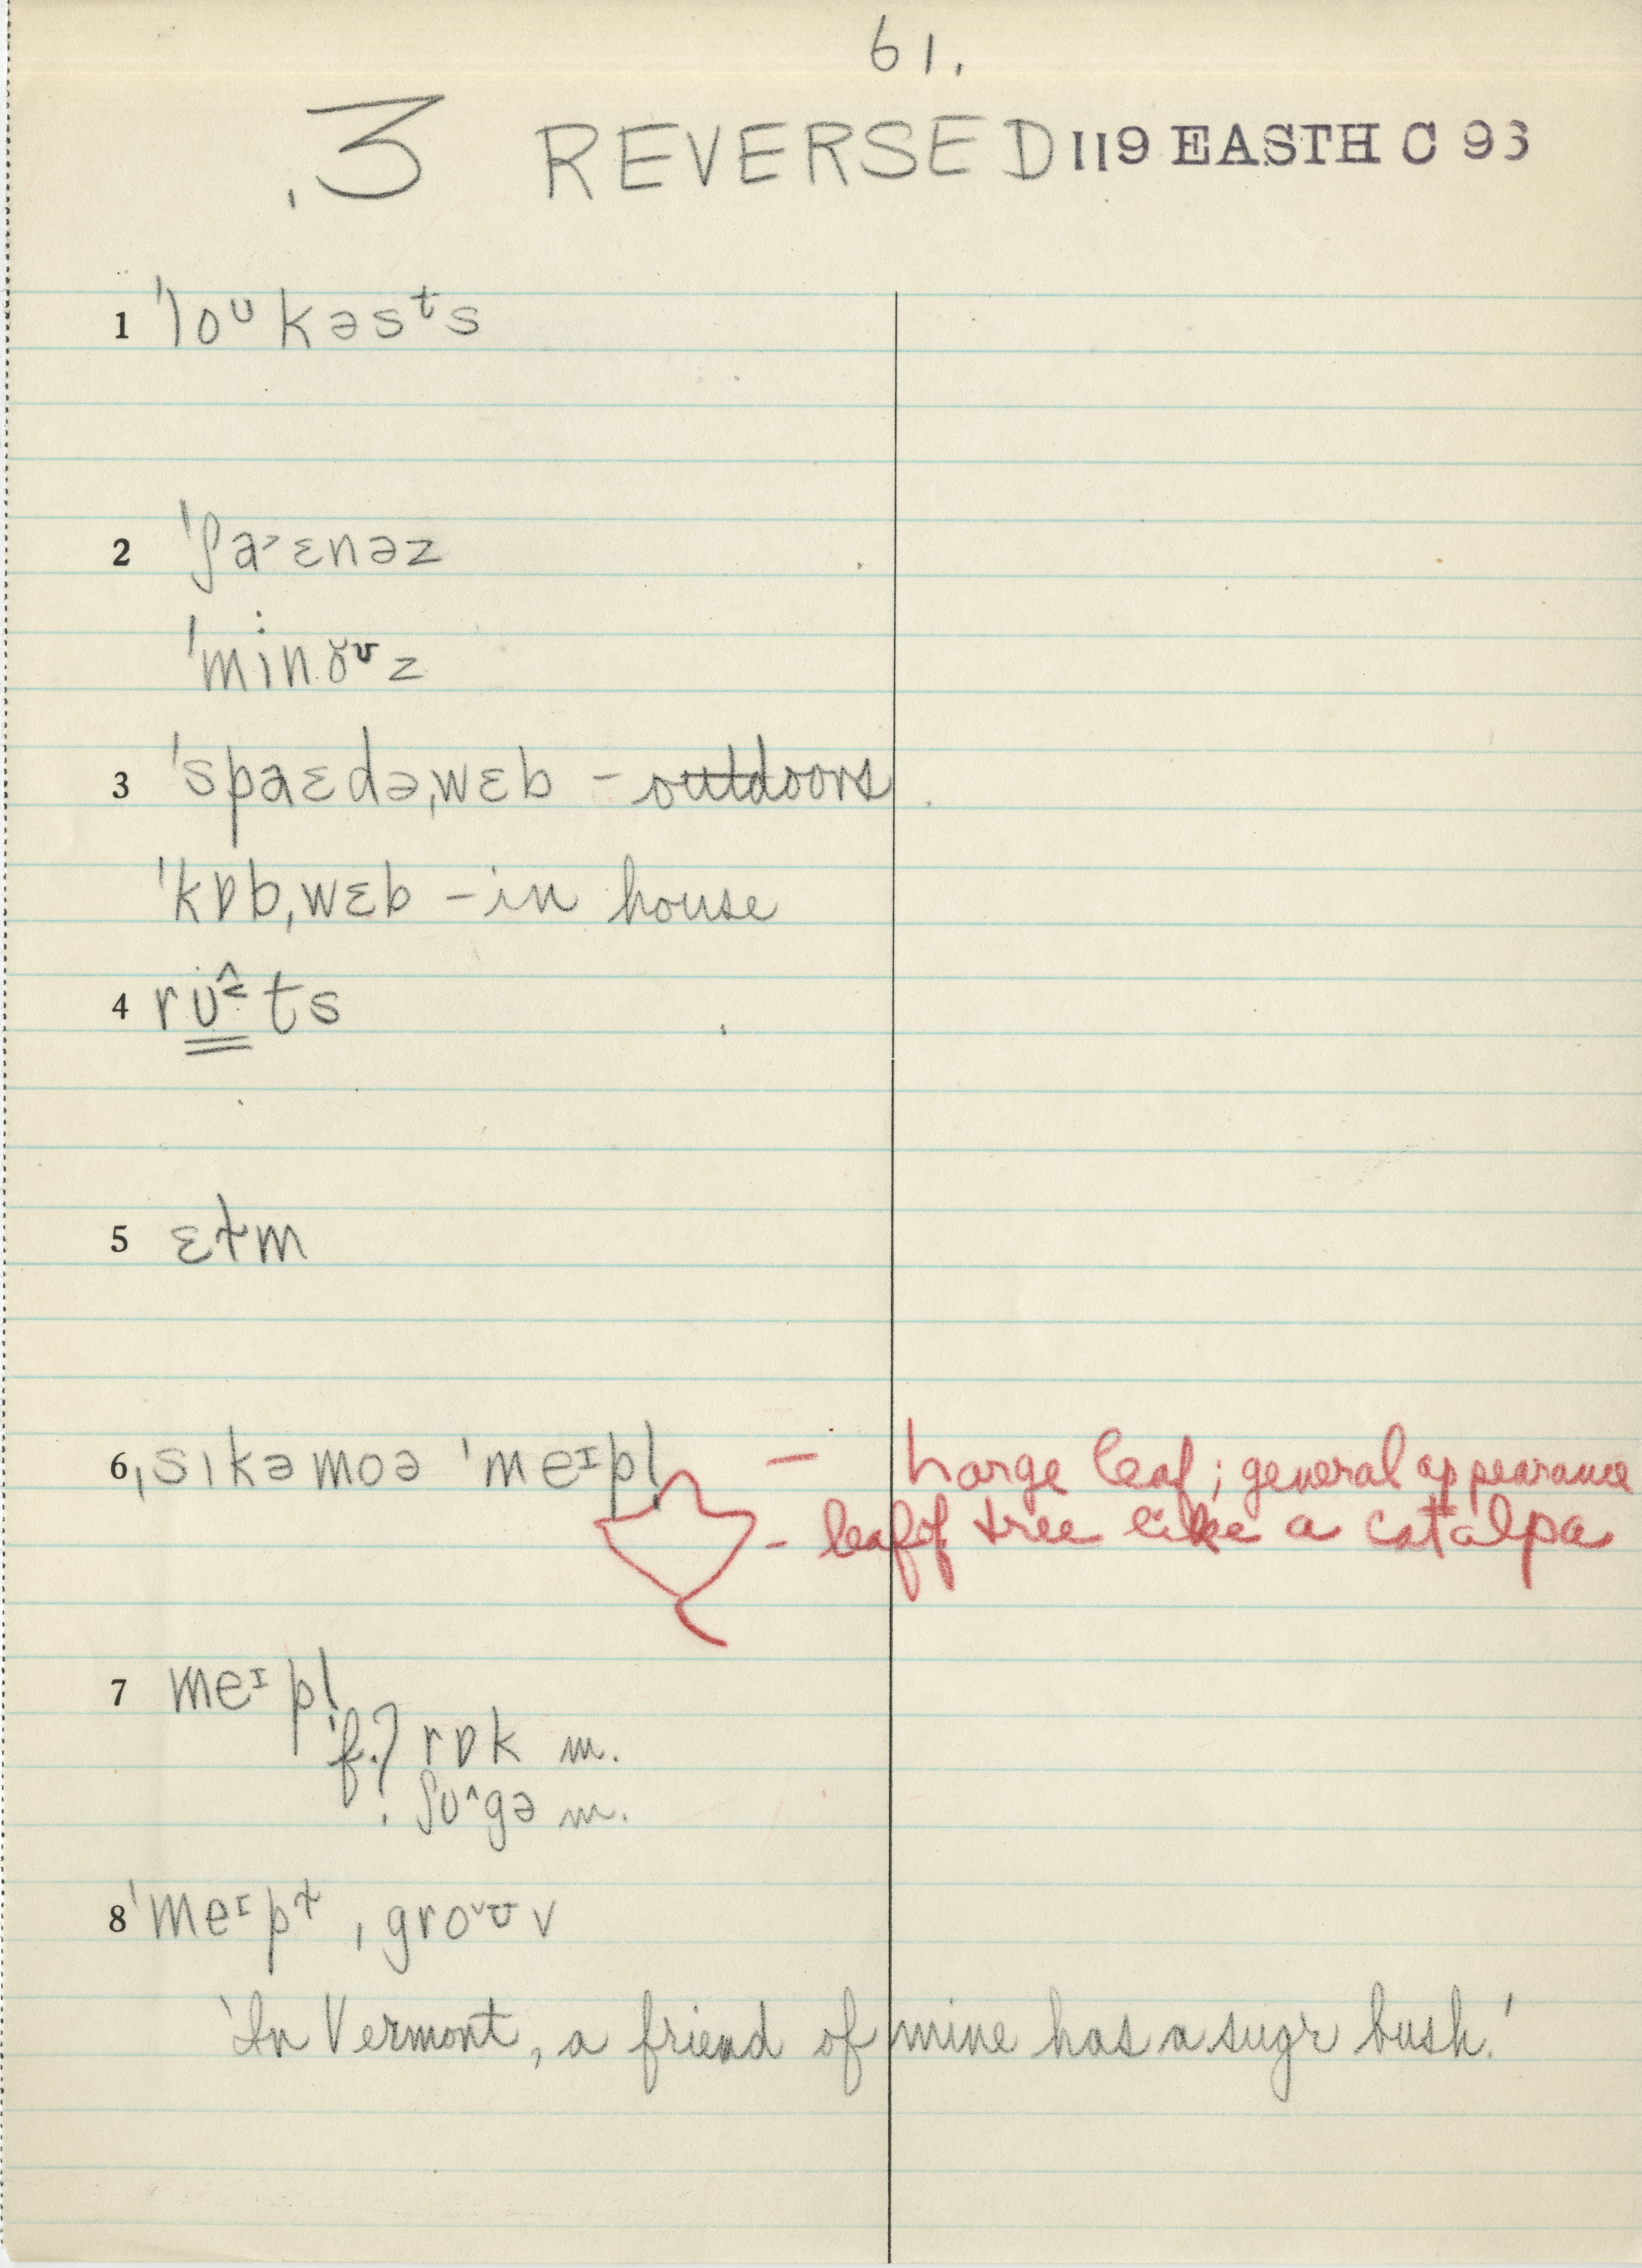 61.
.3 REVERSED 119 EASTH C 93
1 ˈloᵁkəsᵗs
2 ˈʃa˃ɛnəz
ˈmiˑnɤᶷz
3 ˈspaɛdəˌwɛb – outdoors
ˈkɒbˌwɛb – in house
4 rʊ̂˂ts
5 ɛɫm
6 ˌsɪkəmoə ˈmeᴵpl̩ – large leaf; general appearance
– leaf of tree like a catalpa
7 meᴵpl̩
f.? rɒk m.
ʃʊ^gə m.
8 ˈmeᴵpɫ ˌgro˅ᶷv
'In Vermont, a friend of mine has a sugr bush.'